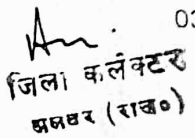 03
जिला कलेक्टर
अलवर (राज०)